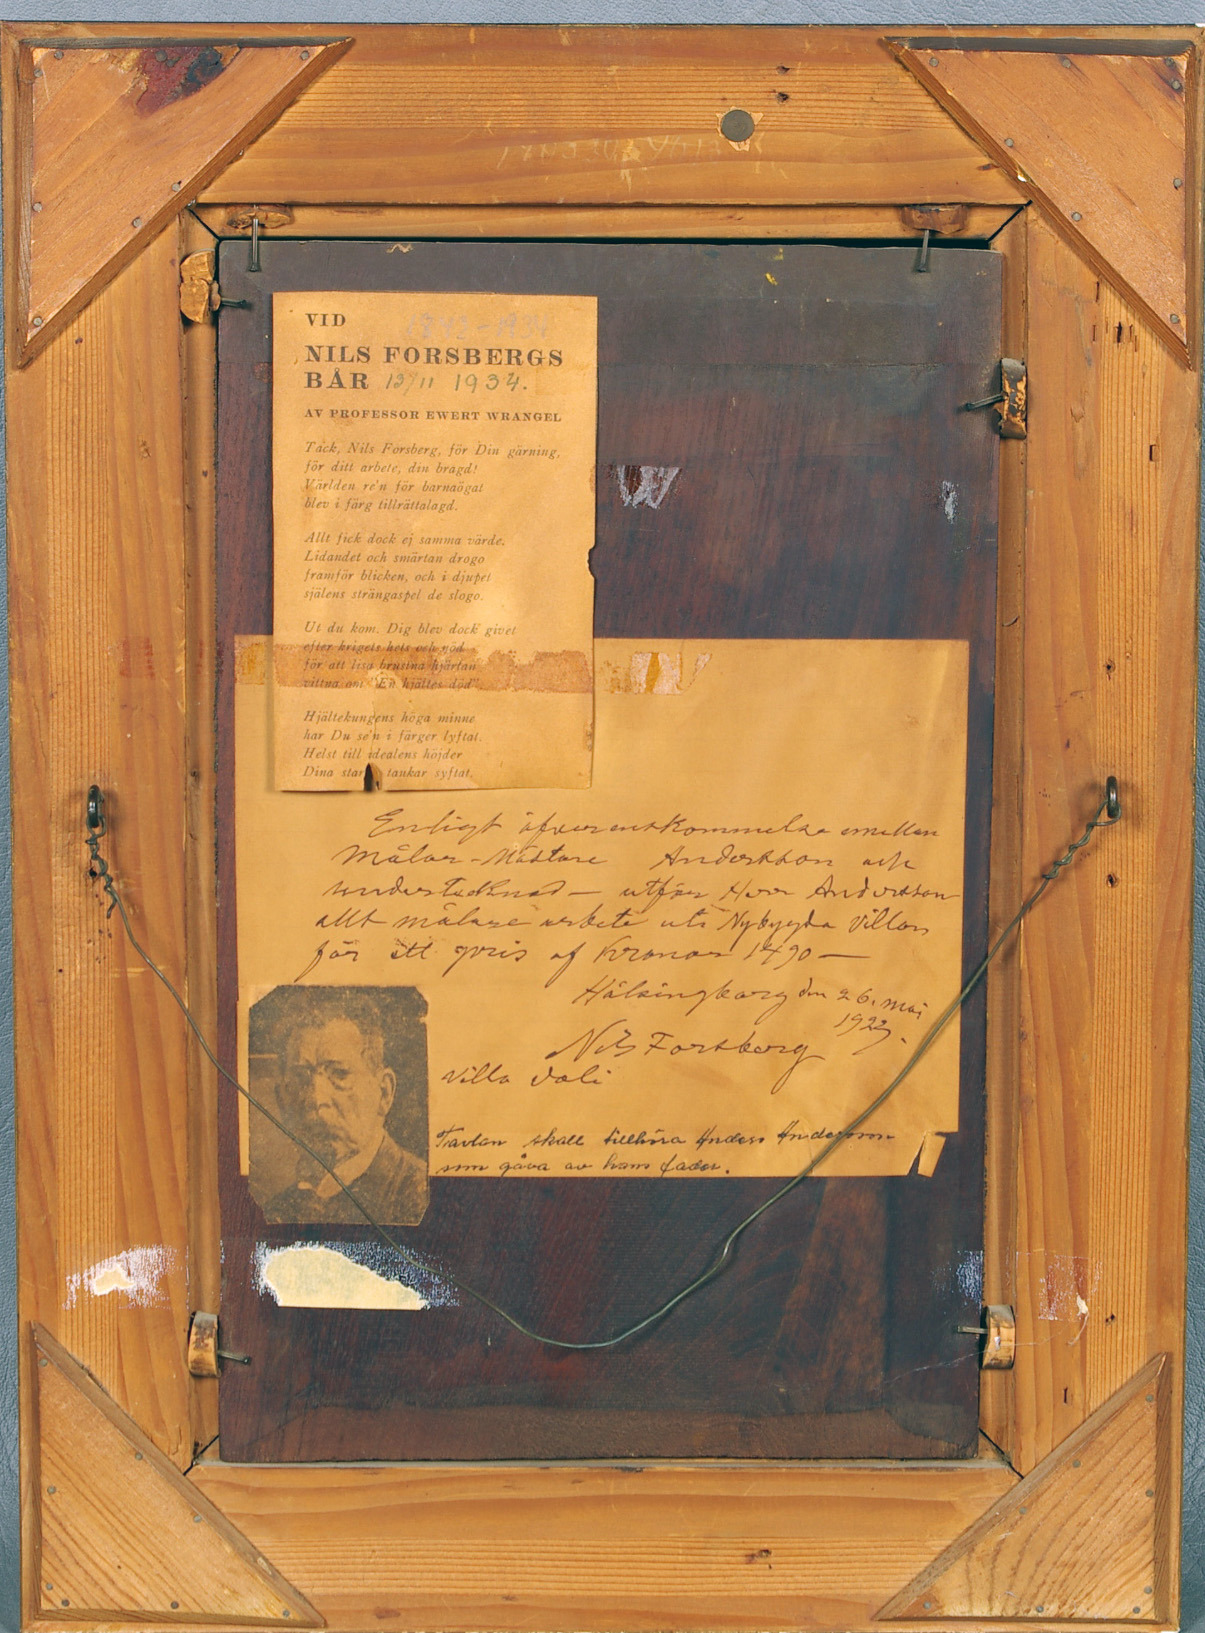 1842-1934
VID
NILS FORSBERGS
BÅR 13/11 1934.
AV PROFESSOR EWERT WRANGEL
Tack, Nils Forsberg, för Din gärning,
för ditt arbete, din bragd!
Världen re'n för barnaögat
blev i färg tillrättalagd.
Allt fick dock ej samma värde.
Lidandet och smärtan drogo
framför blicken, och i djupet
själens strängaspel de slogo.
Ut du kom. Dig blev dock givet
efter krigets hets och nöd
för att lisa brustna hjärtan
vittna om "En hjältes död".
Hjältekungens höga minne
har Du se'n i färger lyftat.
Helst till idealens höjder
Dina tankar syftat.
Enligt öfverenskommelse emellan
Målar-Mästare Andersson och
undertecknad — utför Herr Andersson
allt målare arbete uti Nybygda Villan
för ett pris af Kronor 1490 —
Hälsingborg den 26. Maj
1923.
Nils Forsberg
Villa
Tavlan skall tillhöra Anders Andersson
som gåva av hans fader.